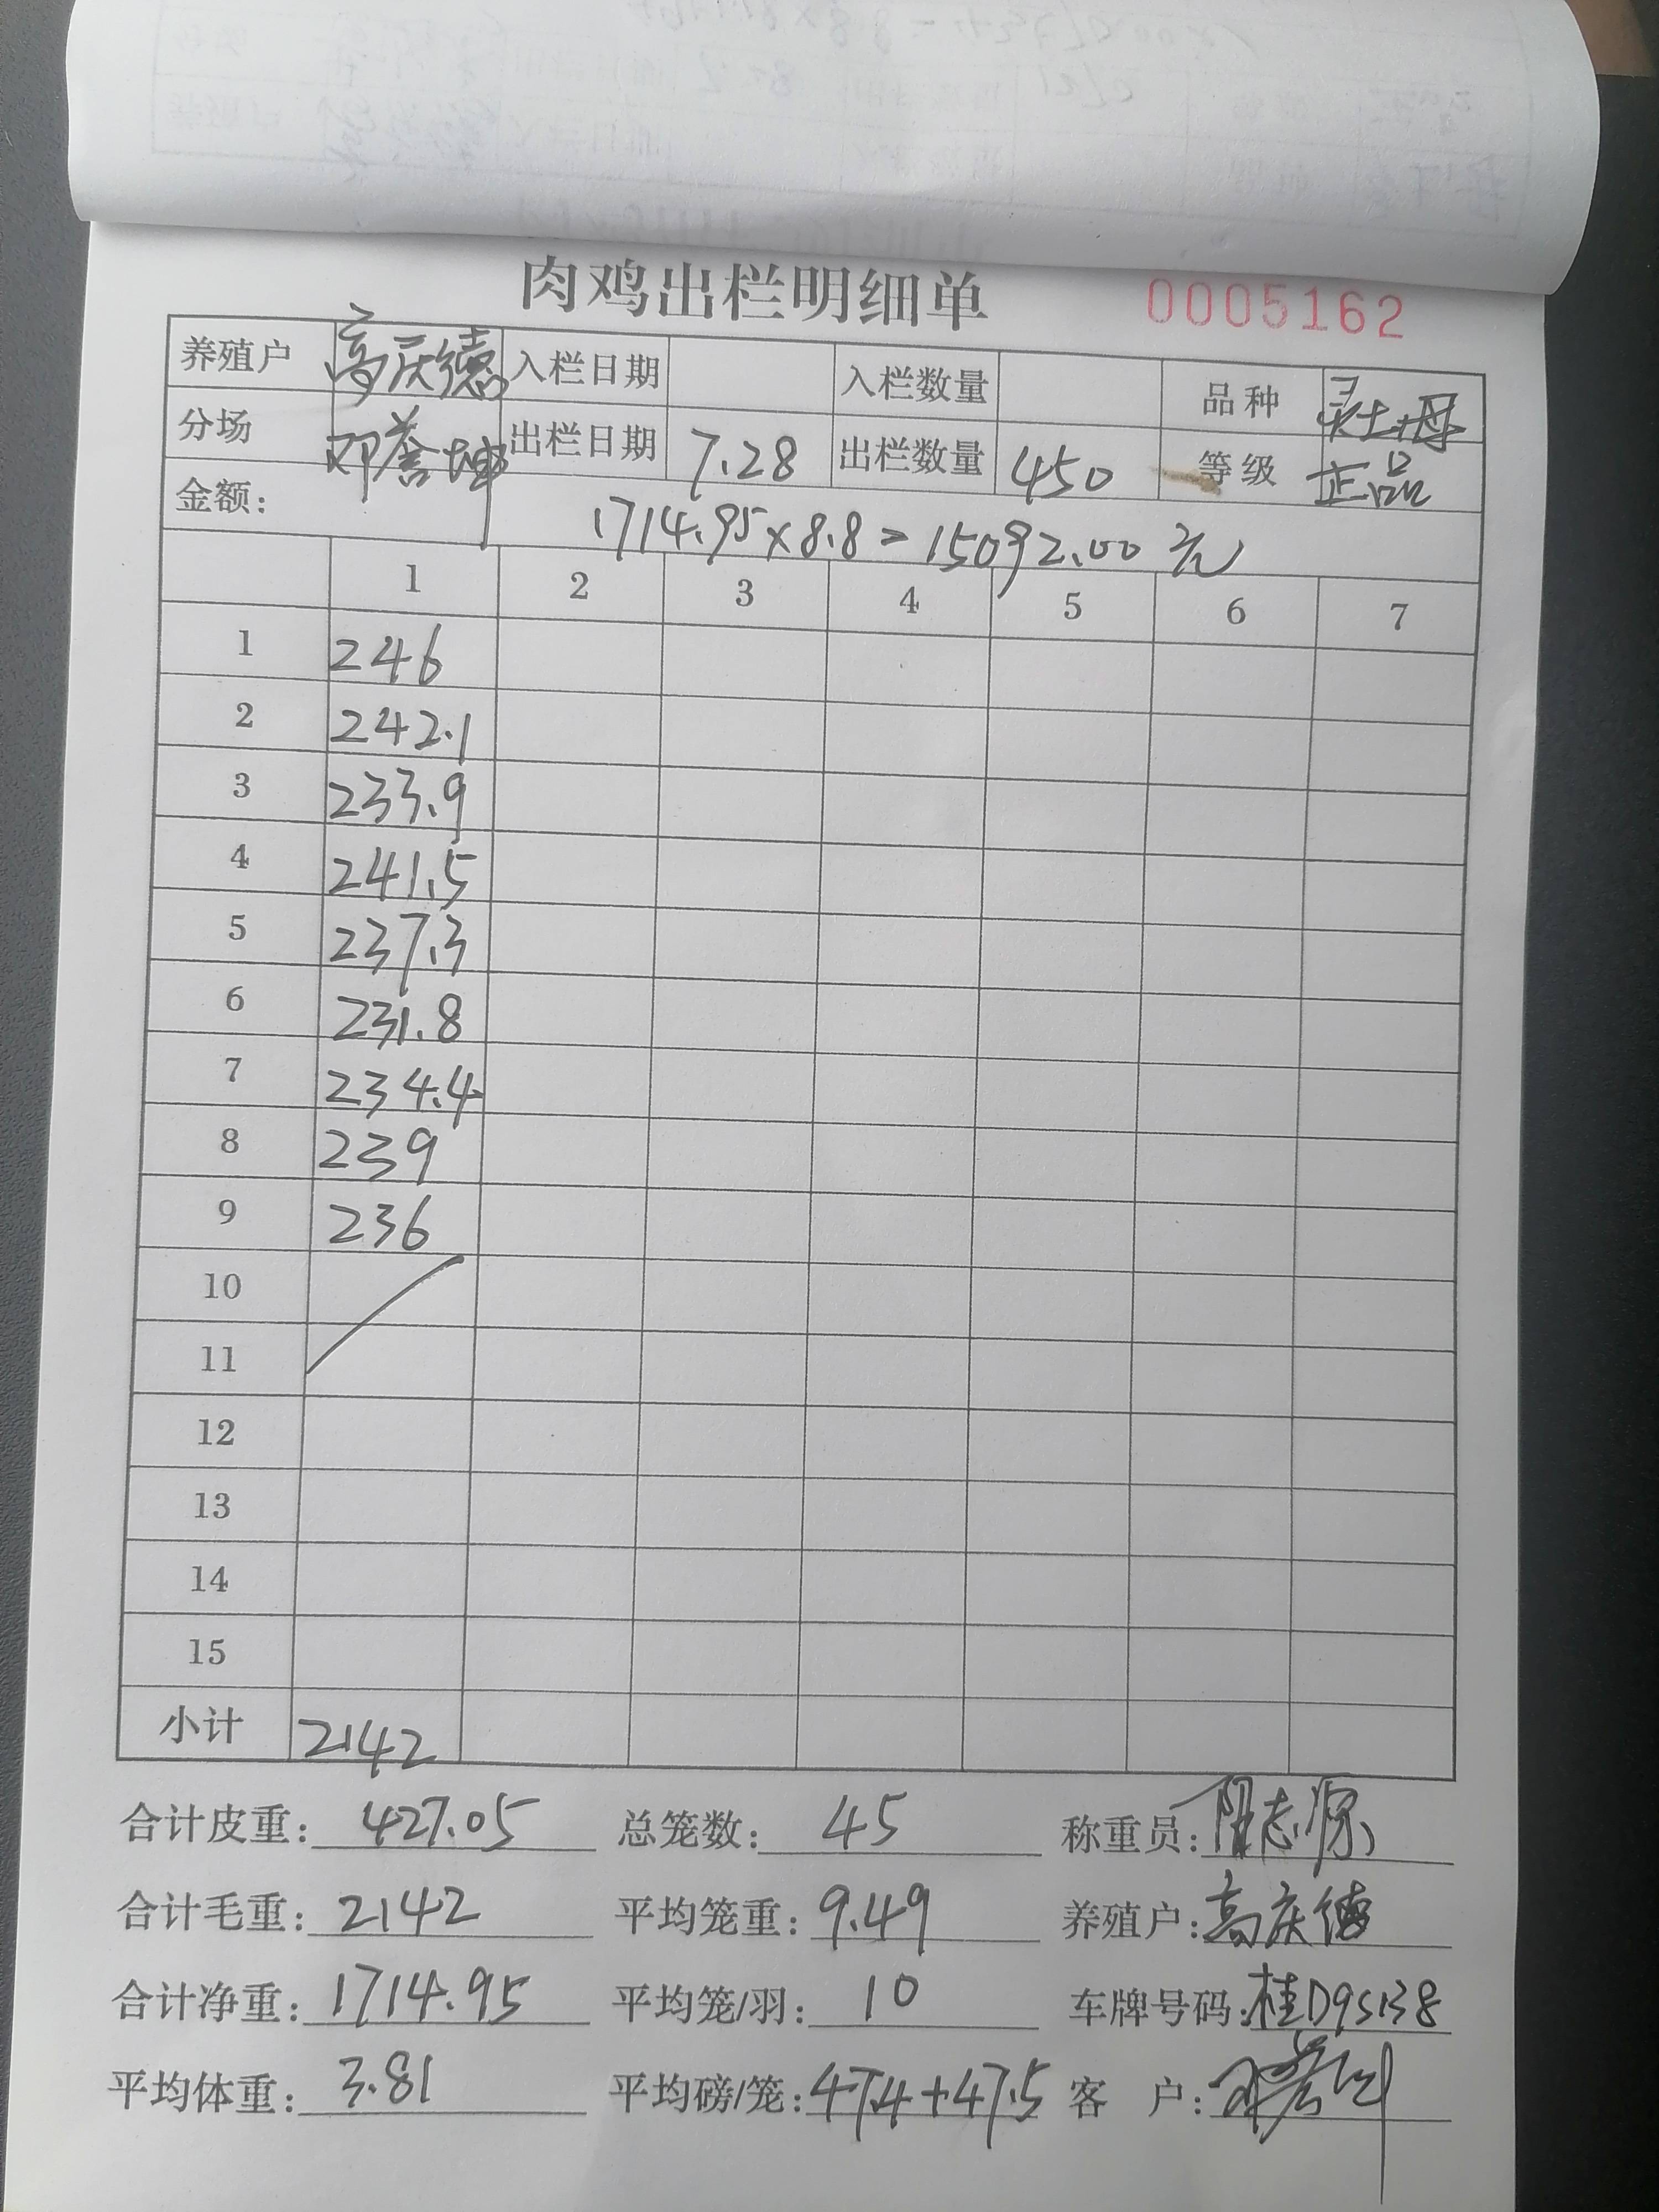 肉鸡出栏明细单 0005162
养殖户 高庆德 入栏日期 入栏数量 品种 灵土母
分场 邓誉坤 出栏日期 7.28 出栏数量 450 等级 正品
金额: 1714.95×8.8=15092.00元
1 2 3 4 5 6 7
1 246
2 242.1
3 233.9
4 241.5
5 237.3
6 231.8
7 234.4
8 239
9 236
10
11
12
13
14
15
小计 2142
合计皮重: 427.05 总笼数: 45 称重员: 志源
合计毛重: 2142 平均笼重: 9.49 养殖户: 高庆德
合计净重: 1714.95 平均笼/羽: 10 车牌号码: 桂D95138
平均体重: 3.81 平均磅/笼: 47.4+47.5 客 户: